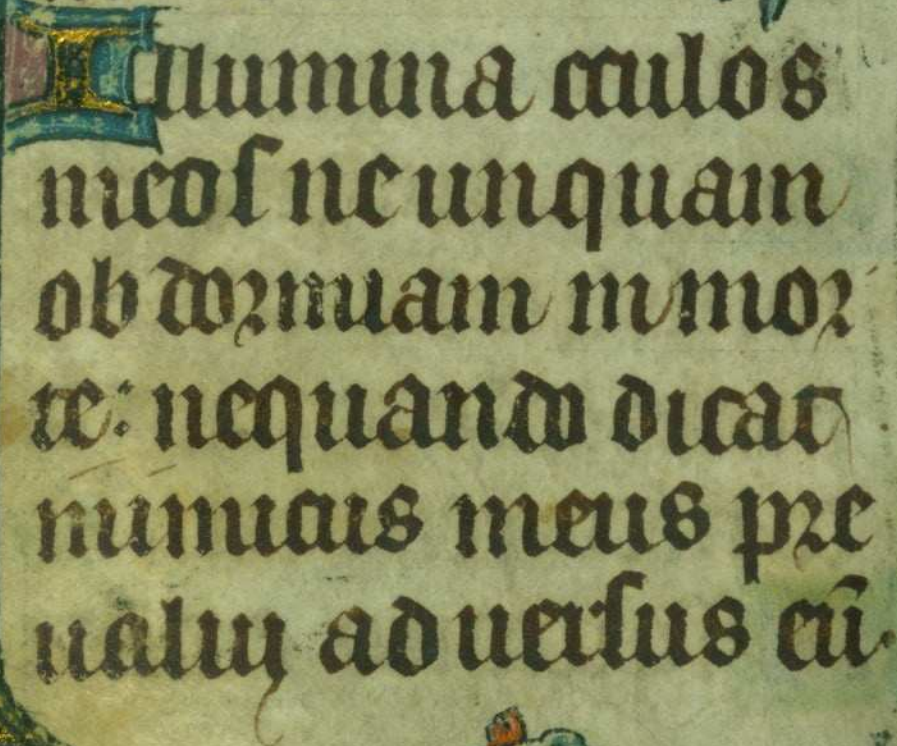 Illumina oculos
meos ne unquam
ob dormiam in mor
te: nequando dicat
inimicus meus pre
ualuy aduersus eū